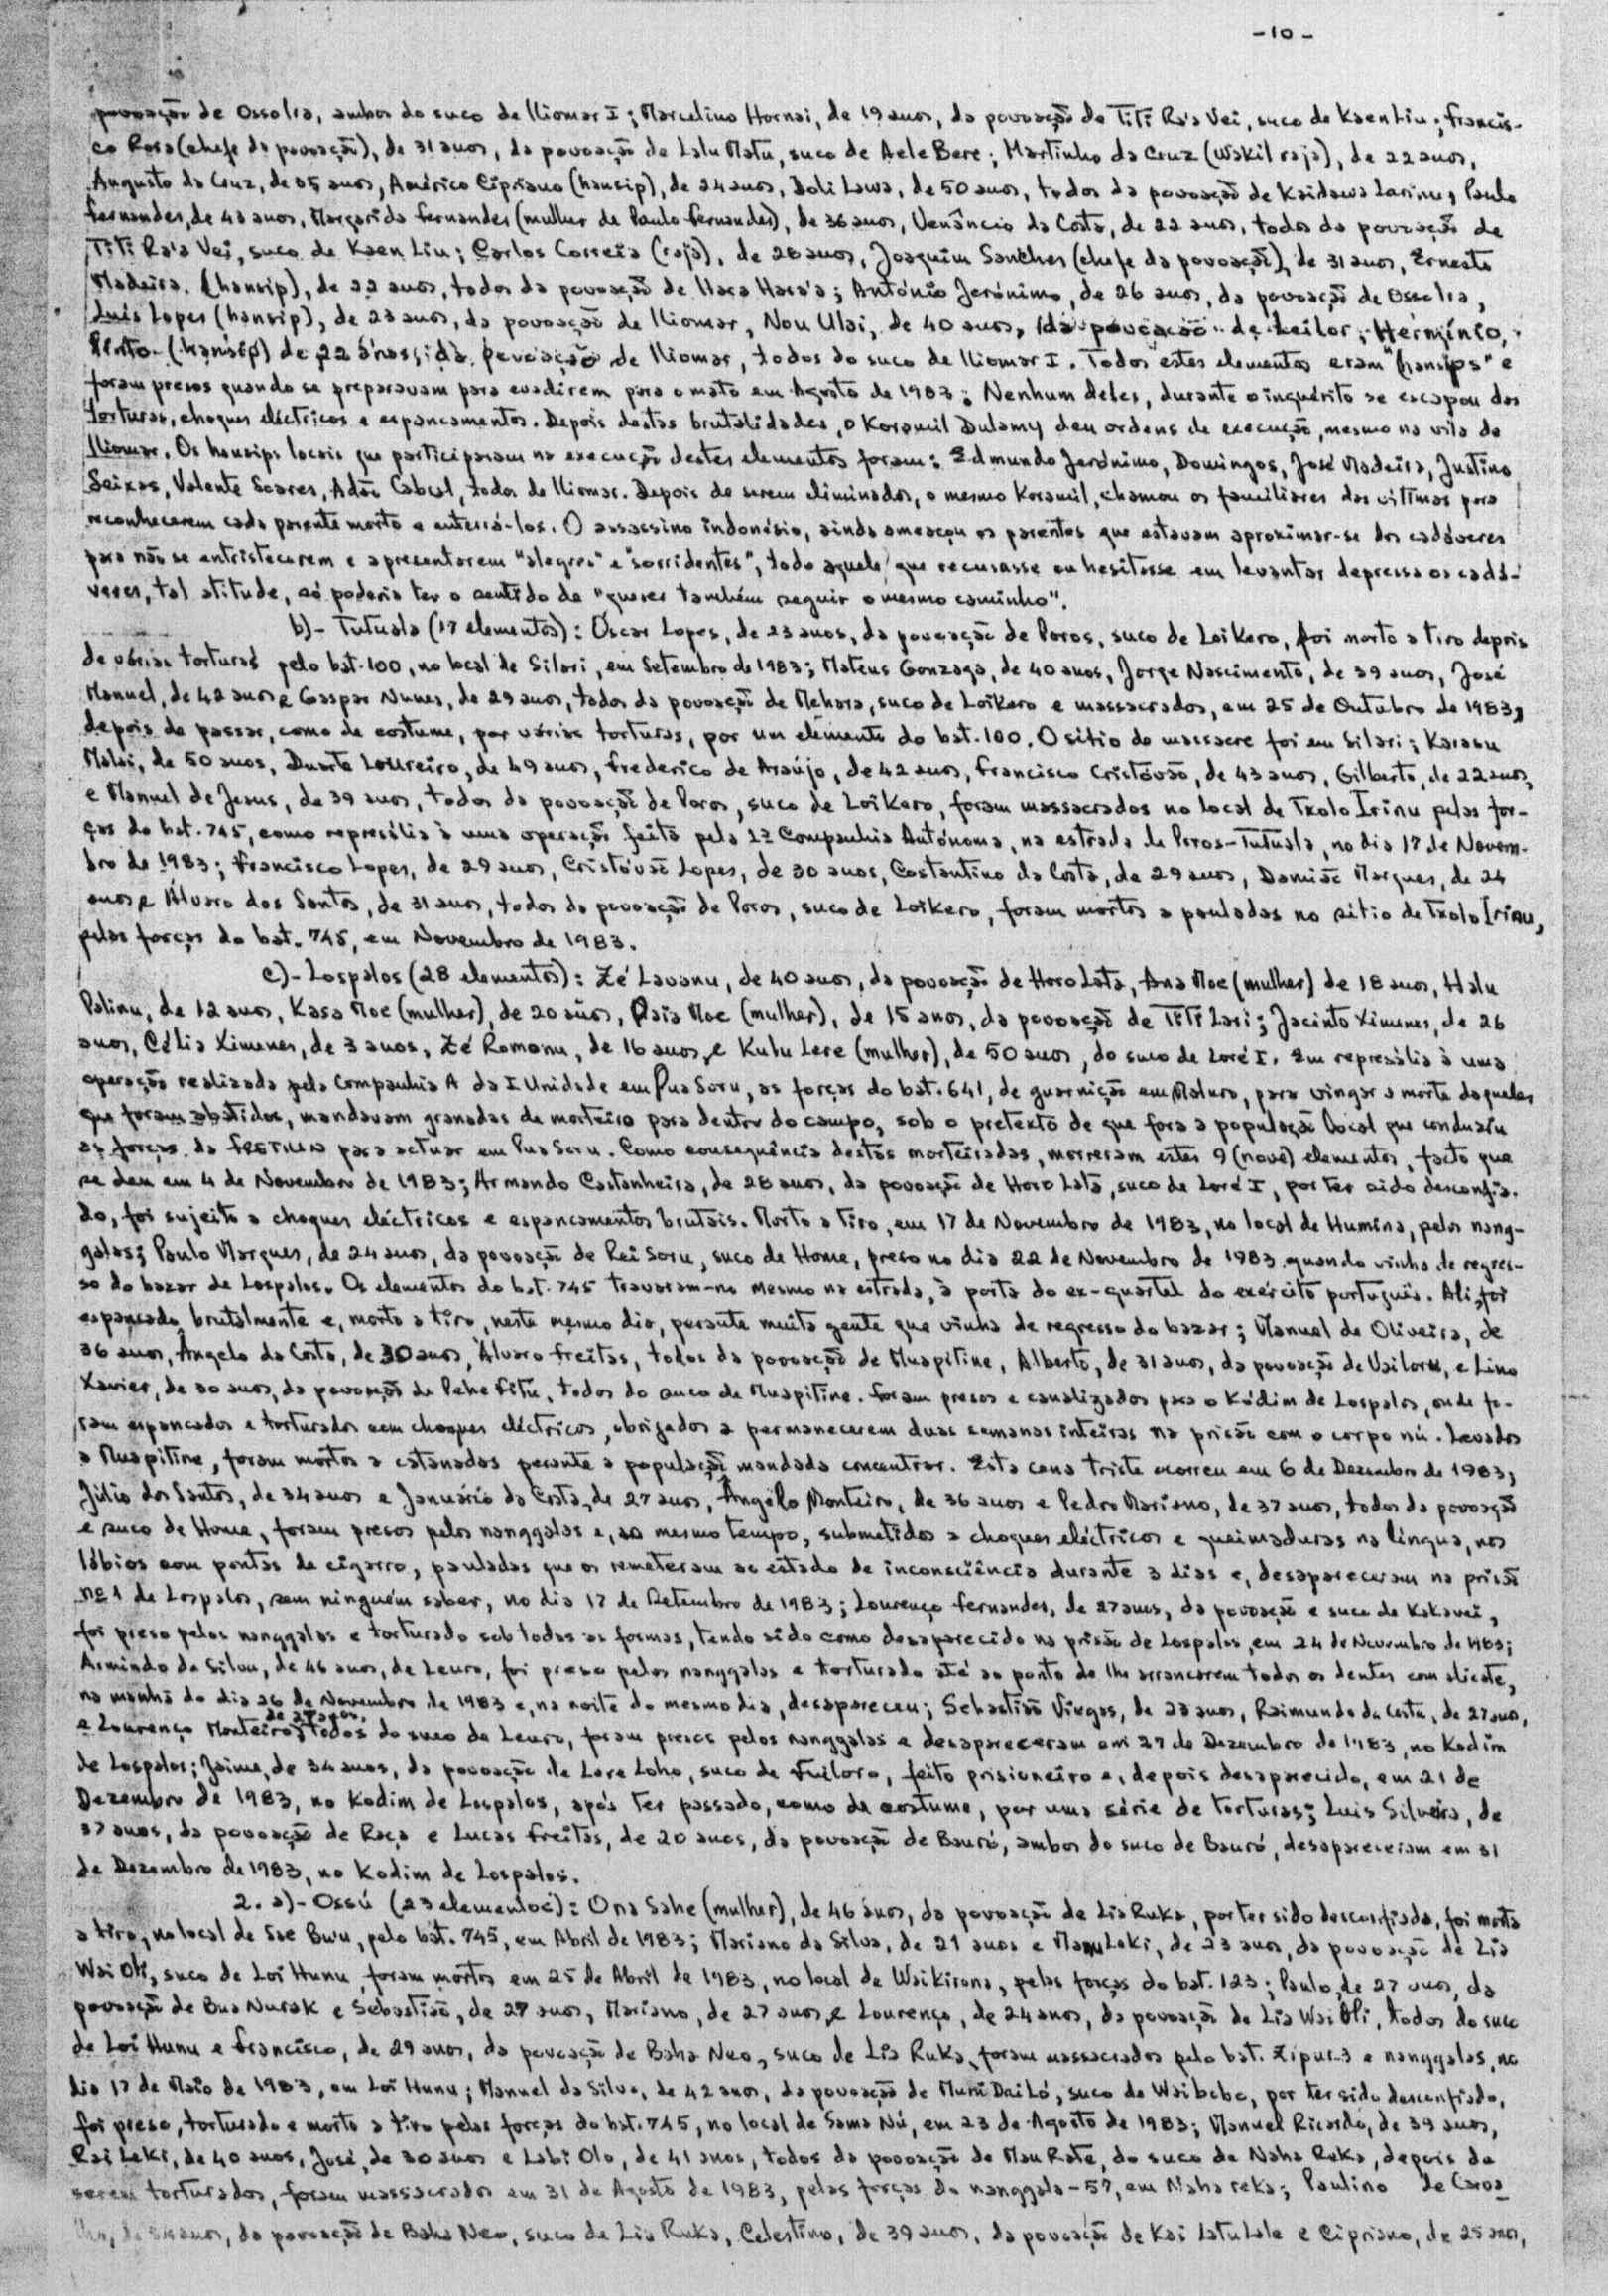 -10-
povoação de Ossolra, ambos do suco de Iliomar I; Marcelino Hornai, de 19 anos, da povoação de Titi Ra'a Vei, suco de Kaen Liu; Francis-
co Rosa (chefe da povoação), de 31 anos, da povoação de Lalu Matu, suco de Aele Bere; Martinho da Cruz (Wakil raja), de 22 anos,
Augusto da Cruz, de 35 anos, Américo Cipriano (hansip), de 24 anos, Doli Lawa, de 50 anos, todos da povoação de Kaidawa Larinu, Paulo
Fernandes, de 43 anos, Margarida Fernandes (mulher de Paulo Fernandes), de 36 anos, Venâncio da Costa, de 22 anos, todos da povoação de
Titi Ra'a Vei, suco de Kaen Liu; Carlos Correia (raja), de 28 anos, Joaquim Sanches (chefe da povoação), de 31 anos, Ernesto
Madeira (hansip), de 22 anos, todos da povoação de Haca Hara'a; António Jerónimo, de 26 anos, da povoação de Ossolra,
Luís Lopes (hansip), de 23 anos, da povoação de Iliomar, Nou Ulai, de 40 anos, da povoação de Leilor, Hermínio,
Pinto (hansip) de 22 anos, da povoação de Iliomar, todos do suco de Iliomar I. Todos estes elementos eram "hansips" e
foram presos quando se preparavam para evadirem para o mato em Agosto de 1983; Nenhum deles, durante o inquérito se escapou das
torturas, choques eléctricos e espancamentos. Depois destas brutalidades, o Koramil Dulamy deu ordens de execução, mesmo na vila de
Iliomar. Os hansips locais que participaram na execução destes elementos foram: Edmundo Jerónimo, Domingos, José Madeira, Justino
Seixas, Valente Soares, Adão Cabral, todos de Iliomar. Depois de serem eliminados, o mesmo Koramil, chamou os familiares das vítimas para
reconhecerem cada parente morto e enterrá-los. O assassino indonésio, ainda ameaçou os parentes que estavam aproximar-se dos cadáveres
para não se entristecerem e apresentarem "alegres" e "sorridentes", todo aquele que recusasse ou hesitasse em levantar depressa os cadá-
veres, tal atitude, só poderia ter o sentido de "querer também seguir o mesmo caminho".
b)- Tutuala (17 elementos): Óscar Lopes, de 23 anos, da povoação de Poros, suco de Loikero, foi morto a tiro depois
de várias torturas pelo bat. 100, no local de Silari, em Setembro de 1983; Mateus Gonzaga, de 40 anos, Jorge Nascimento, de 39 anos, José
Manuel, de 42 anos e Gaspar Nunes, de 29 anos, todos da povoação de Mehara, suco de Loikero e massacrados, em 25 de Outubro de 1983,
depois de passar, como de costume, por várias torturas, por um elemento do bat. 100. O sítio do massacre foi em Silari; Karasu
Malai, de 50 anos, Duarte Loureiro, de 49 anos, Frederico de Araújo, de 42 anos, Francisco Cristóvão, de 43 anos, Gilberto, de 22 anos,
e Manuel de Jesus, de 39 anos, todos da povoação de Poros, suco de Loikero, foram massacrados no local de Txolo Irinu pelas for-
ças do bat. 745, como represália à uma operação feita pela 1ª Companhia Autónoma, na estrada de Poros-Tutuala, no dia 17 de Novem-
bro de 1983; Francisco Lopes, de 29 anos, Cristóvão Lopes, de 30 anos, Costantino da Costa, de 29 anos, Damião Marques, de 24
anos e Álvaro dos Santos, de 31 anos, todos da povoação de Poros, suco de Loikero, foram mortos a pauladas no sítio de Txolo Irinu,
pelas forças do bat. 745, em Novembro de 1983.
c)- Lospalos (28 elementos): Zé Lavanu, de 40 anos, da povoação de Horo Lata, Ana Moe (mulher) de 18 anos, Halu
Palinu, de 12 anos, Kasa Moe (mulher), de 20 anos, Paia Moe (mulher), de 15 anos, da povoação de Titi Lari; Jacinto Ximenes, de 26
anos, Célia Ximenes, de 3 anos, Zé Romanu, de 16 anos, e Kulu Lere (mulher), de 50 anos, do suco de Loré I. Em represália à uma
operação realizada pela Companhia A da I Unidade em Pua Soru, as forças do bat. 641, de guarnição em Maluro, para vingar a morte daqueles
que foram abatidos, mandavam granadas de morteiro para dentro do campo, sob o pretexto de que fora a população local que conduziu
as forças da FRETILIN para actuar em Pua Soru. Como consequência destas morteiradas, morreram estes 9 (nove) elementos, facto que
se deu em 4 de Novembro de 1983; Armando Castanheira, de 28 anos, da povoação de Horo Lata, suco de Loré I, por ter sido desconfia-
do, foi sujeito a choques eléctricos e espancamentos brutais. Morto a tiro, em 17 de Novembro de 1983, no local de Humina, pelos nang-
galas; Paulo Marques, de 24 anos, da povoação de Rei Soru, suco de Home, preso no dia 22 de Novembro de 1983 quando vinha de regres-
so do bazar de Lospalos. Os elementos do bat. 745 travaram-no mesmo na estrada, à porta do ex-quartel do exército português. Ali, foi
espancado brutalmente e, morto a tiro, neste mesmo dia, perante muita gente que vinha de regresso do bazar; Manuel de Oliveira, de
36 anos, Ângelo da Costa, de 30 anos, Álvaro Freitas, todos da povoação de Muapitine, Alberto, de 31 anos, da povoação de Vailoru, e Lino
Xavier, de 30 anos, da povoação de Pehe Fitu, todos do suco de Muapitine. Foram presos e canalizados para o Kódim de Lospalos, onde fo-
ram espancados e torturados com choques eléctricos, obrigados a permanecerem duas semanas inteiras na prisão com o corpo nú. Levados
a Muapitine, foram mortos a catanadas perante a população mandada concentrar. Esta cena triste ocorreu em 6 de Dezembro de 1983;
Júlio dos Santos, de 34 anos e Januário da Costa, de 27 anos, Ângelo Monteiro, de 36 anos e Pedro Mariano, de 37 anos, todos da povoação
e suco de Home, foram presos pelos nanggalas e, ao mesmo tempo, submetidos a choques eléctricos e queimaduras na língua, nos
lábios com pontas de cigarro, pauladas que os remeteram ao estado de inconsciência durante 3 dias e, desapareceram na prisão
nº 1 de Lospalos, sem ninguém saber, no dia 17 de Setembro de 1983; Lourenço Fernandes, de 27 anos, da povoação e suco de Kakavei,
foi preso pelos nanggalas e torturado sob todas as formas, tendo sido como desaparecido na prisão de Lospalos, em 24 de Novembro de 1983;
Armindo da Silva, de 46 anos, de Leuro, foi preso pelos nanggalas e torturado até ao ponto de lhe arrancarem todos os dentes com alicate,
na manhã do dia 26 de Novembro de 1983 e, na noite do mesmo dia, desapareceu; Sebastião Viegas, de 23 anos, Raimundo da Costa, de 27 anos,
e Lourenço Monteiro, de 27 anos, todos do suco de Leuro, foram presos pelos nanggalas e desapareceram em 27 de Dezembro de 1983, no Kodim
de Lospalos; Jaime, de 34 anos, da povoação de Lere Loho, suco de Fuiloro, feito prisioneiro e, depois desaparecido, em 21 de
Dezembro de 1983, no Kodim de Lospalos, após ter passado, como de costume, por uma série de torturas; Luis Silveira, de
37 anos, da povoação de Raça e Lucas Freitas, de 20 anos, da povoação de Bauró, ambos do suco de Bauró, desapareceram em 31
de Dezembro de 1983, no Kodim de Lospalos.
2. a)- Ossú (23 elementos): Ona Sahe (mulher), de 46 anos, da povoação de Lia Ruka, por ter sido desconfiada, foi morta
a tiro, no local de Sae Bu'u, pelo bat. 745, em Abril de 1983; Mariano da Silva, de 21 anos e Manu Leki, de 23 anos, da povoação de Lia
Wai Oli, suco de Loi Hunu, foram mortos em 25 de Abril de 1983, no local de Waikirona, pelas forças do bat. 123; Paulo, de 27 anos, da
povoação de Bua Nurak e Sebastião, de 27 anos, Mariano, de 27 anos, e Lourenço, de 24 anos, da povoação de Lia Wai Oli, todos do suco
de Loi Hunu e Francisco, de 29 anos, da povoação de Baha Neo, suco de Lia Ruka, foram massacrados pelo bat. Zipur-3 e nanggalas, no
dia 17 de Maio de 1983, em Loi Hunu; Manuel da Silva, de 42 anos, da povoação de Muni Dai Ló, suco de Waibobo, por ter sido desconfiado,
foi preso, torturado e morto a tiro pelas forças do bat. 745, no local de Sama Nú, em 23 de Agosto de 1983; Manuel Ricardo, de 39 anos,
Rai Leki, de 40 anos, José, de 30 anos e Labi Olo, de 41 anos, todos da povoação de Mau Rate, do suco de Naha Reka, depois de
serem torturados, foram massacrados em 31 de Agosto de 1983, pelas forças do nanggala-57, em Naha reka; Paulino de Carva
lho, de anos, da povoação de Baha Neo, suco de Lia Ruka, Celestino, de 39 anos, da povoação de Kai Latu Lale e Cipriano, de 25 anos,